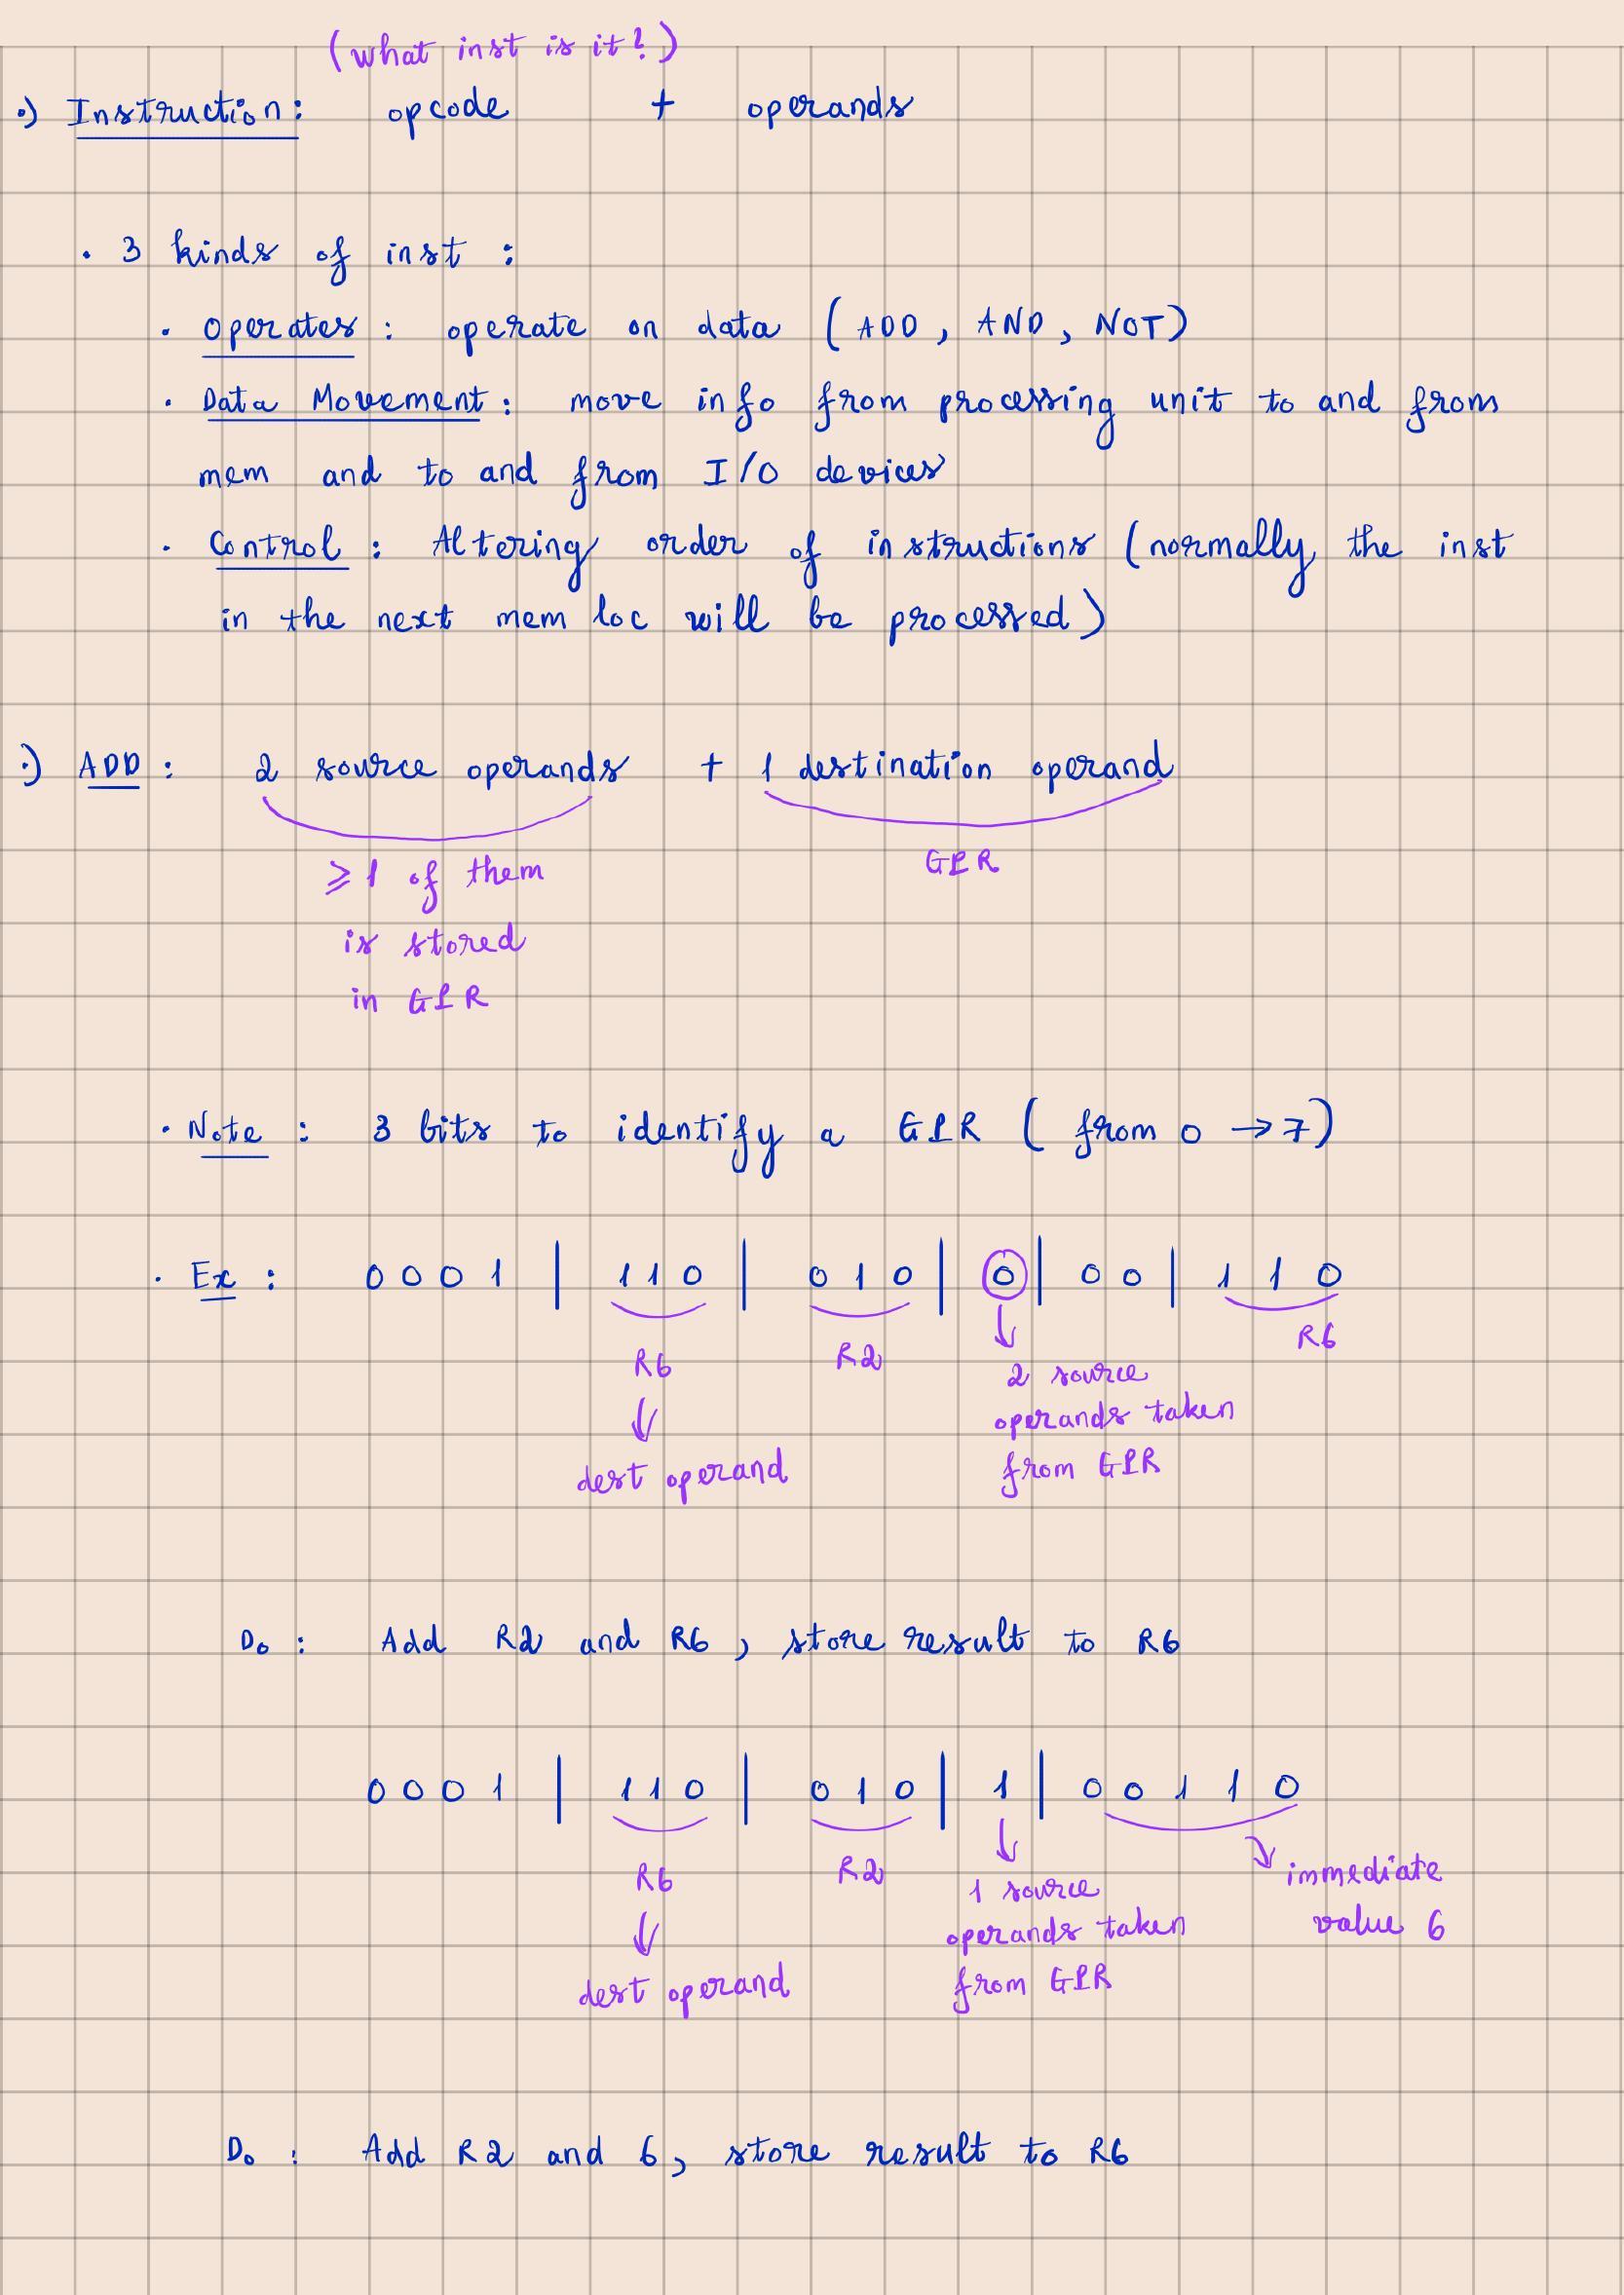 (what inst is it?)
•) Instruction: opcode + operands
• 3 kinds of inst :
• Operates : operate on data (ADD, AND, NOT)
• Data Movement : move info from processing unit to and from
mem and to and from I/O devices
• Control : Altering order of instructions (normally the inst
in the next mem loc will be processed)
•) ADD : 2 source operands + 1 destination operand
≥ 1 of them
is stored
in GPR
GPR
• Note : 3 bits to identify a GPR (from 0 → 7)
• Ex : 0 0 0 1 | 1 1 0 | 0 1 0 | 0 | 0 0 | 1 1 0
R6 R2 ↓ R6
↓ 2 source
dest operand operands taken
from GPR
Do : Add R2 and R6, store result to R6
0 0 0 1 | 1 1 0 | 0 1 0 | 1 | 0 0 1 1 0
R6 R2 ↓ ↘ immediate
↓ 1 source value 6
dest operand operands taken
from GPR
Do : Add R2 and 6, store result to R6